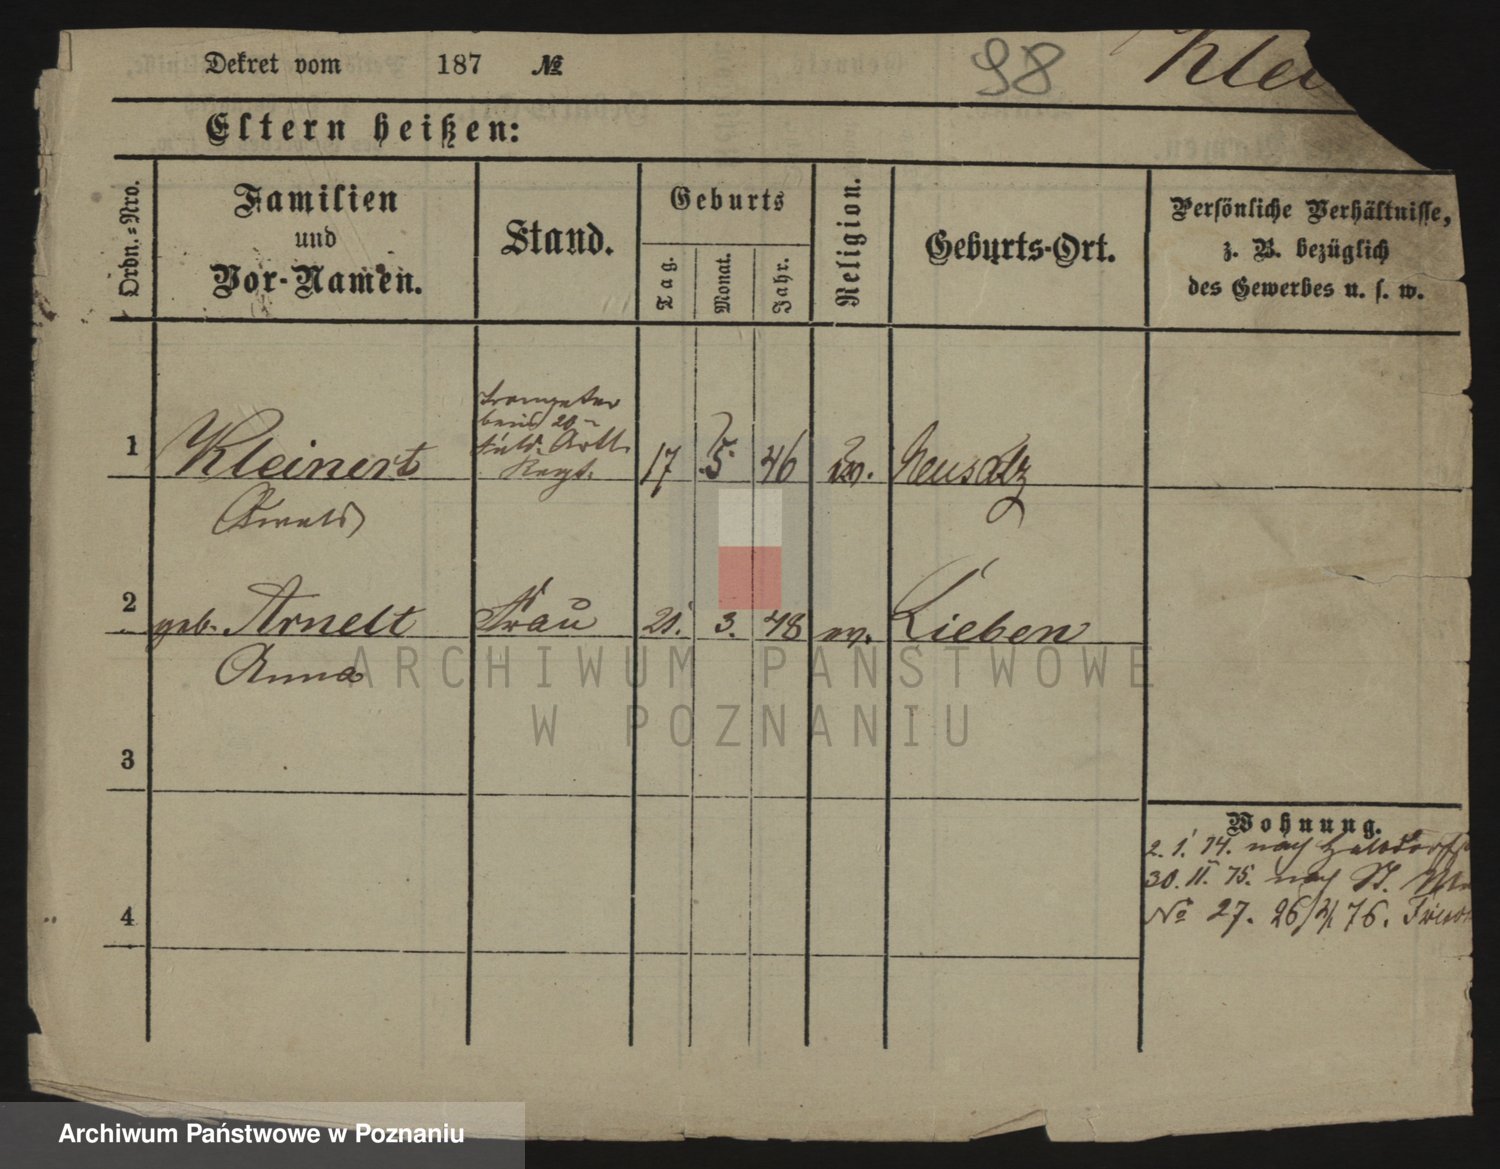 Dekret vom 187 №
98
Klei
Eltern heißen:
Ordn.=Nro.
Familien
und
Vor-Namen.
Stand.
Geburts
Tag.
Monat.
Jahr.
Religion.
Geburts-Ort.
Persönliche Verhältnisse,
z. B. bezüglich
des Gewerbes u. s. w.
Trompeter
beim 20-
Feld. Artl.
Regt.
1 Kleinert 17 5. 46 ev. Neusalz
2 geb. Arnelt Frau 21. 3. 48 ev. Lieben
Anna
3
4
Wohnung.
2. 1. 74. nach
30. 11. 75. nach St.
No 27. 26/4 76.
ARCHIWUM PAŃSTWOWE
W POZNANIU
Archiwum Państwowe w Poznaniu